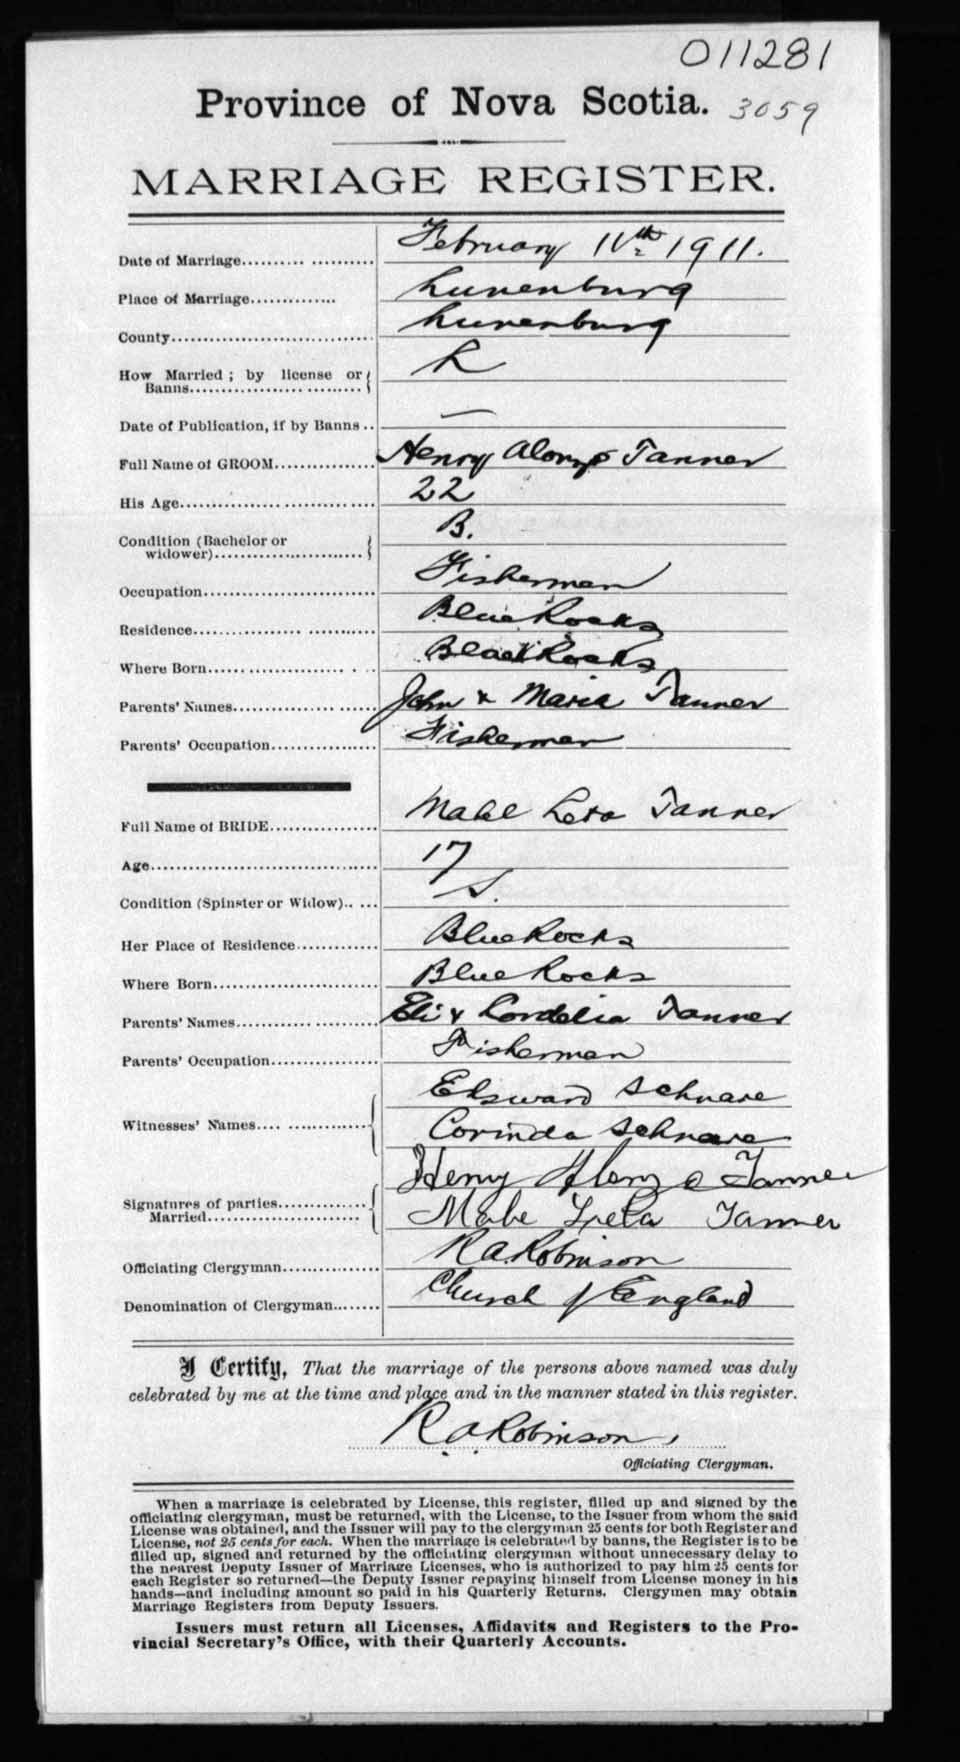 011281
Province of Nova Scotia. 3059
MARRIAGE REGISTER.
Date of Marriage.......... February 11th 1911.
Place of Marriage.............. Lunenburg
County................................ Lunenburg
How Married ; by license or L
Banns................................
Date of Publication, if by Banns .. —
Full Name of GROOM................ Henry Alonzo Tanner
His Age................................ 22
Condition (Bachelor or B.
widower)........................
Occupation............................ Fisherman
Residence............................ Blue Rocks
Where Born........................ Black Rocks
Parents' Names.................... John & Maria Tanner
Parents' Occupation................ Fisherman
Full Name of BRIDE................ Mabel Leta Tanner
Age.................................... 17
Condition (Spinster or Widow)..... S.
Her Place of Residence............ Blue Rocks
Where Born........................ Blue Rocks
Parents' Names.................... Eli & Cordelia Tanner
Parents' Occupation................ Fisherman
Schnare
Witnesses' Names.................. Corinda Schnare
Henry Alonzo Tanner
Signatures of parties
Married........................ Mabe Tanner
Officiating Clergyman............ R A Robinson
Denomination of Clergyman........ Church of England
I Certify, That the marriage of the persons above named was duly
celebrated by me at the time and place and in the manner stated in this register.
R. A. Robinson
Officiating Clergyman.
When a marriage is celebrated by License, this register, filled up and signed by the
officiating clergyman, must be returned, with the License, to the Issuer from whom the said
License was obtained, and the Issuer will pay to the clergyman 25 cents for both Register and
License, not 25 cents for each. When the marriage is celebrated by banns, the Register is to be
filled up, signed and returned by the officiating clergyman without unnecessary delay to
the nearest Deputy Issuer of Marriage Licenses, who is authorized to pay him 25 cents for
each Register so returned—the Deputy Issuer repaying himself from License money in his
hands—and including amount so paid in his Quarterly Returns. Clergymen may obtain
Marriage Registers from Deputy Issuers.
Issuers must return all Licenses, Affidavits and Registers to the Pro-
vincial Secretary's Office, with their Quarterly Accounts.